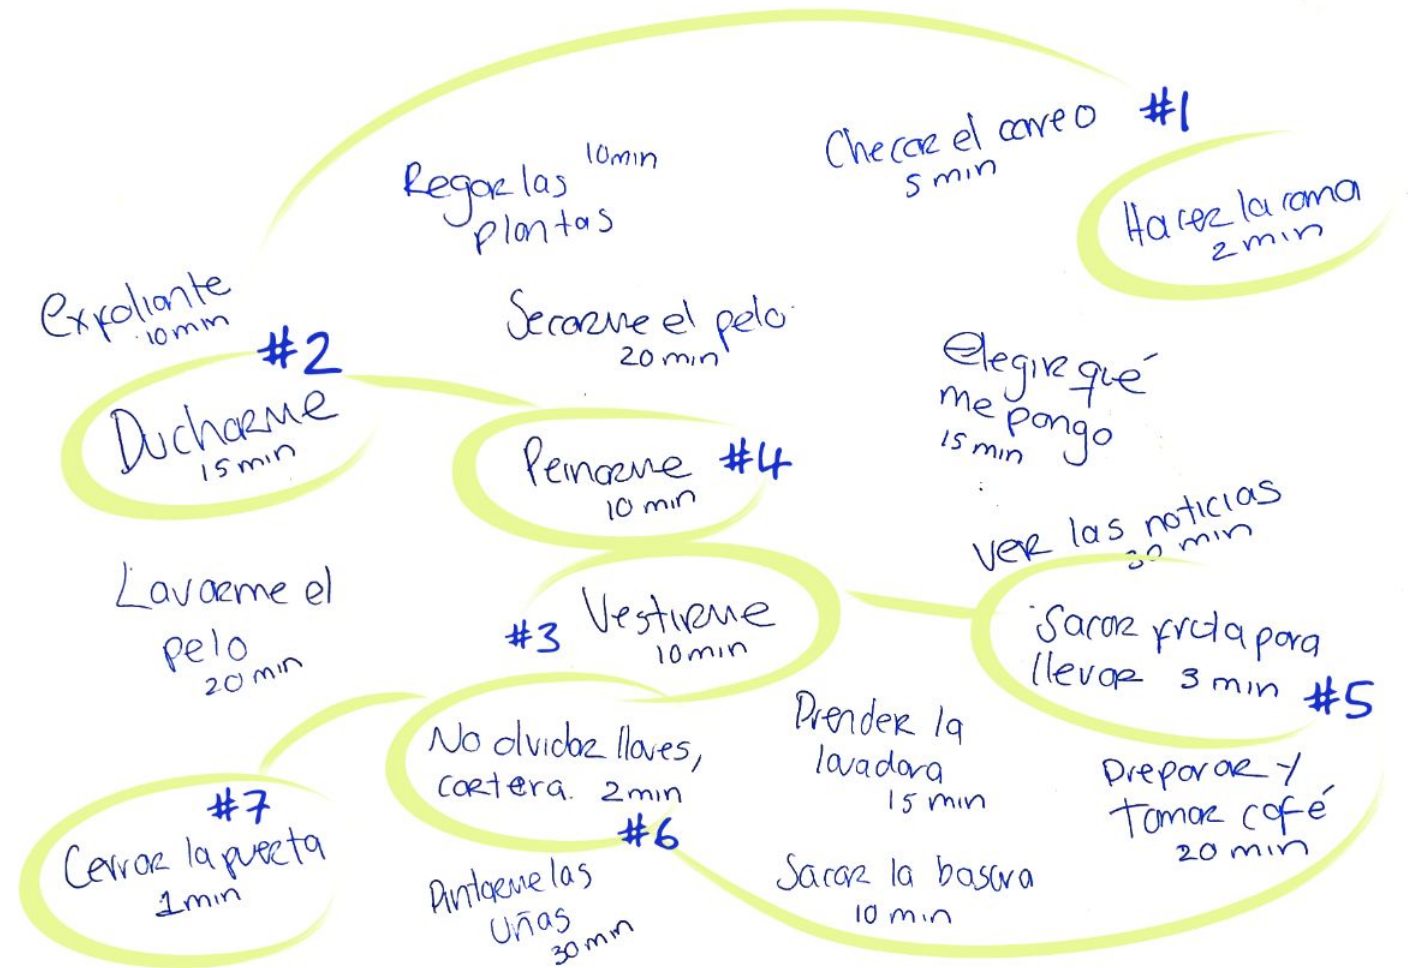 10min
Regar las
plantas
Checar el correo
5 min
#1
Hacer la cama
2 min
Exfoliante
10min
#2
Ducharme
15min
Secarme el pelo
20 min
Elegir qué
me pongo
15 min
Peinarme #4
10 min
Ver las noticias
30 min
Lavarme el
pelo
20 min
#3 Vestirme
10min
Sacar fruta para
llevar 3 min #5
No olvidar llaves,
cartera. 2min
#6
Prender la
lavadora
15 min
Preparar y
Tomar café
20 min
#7
Cerrar la puerta
1min
Pintarme las
uñas
30min
Sacar la basura
10 min